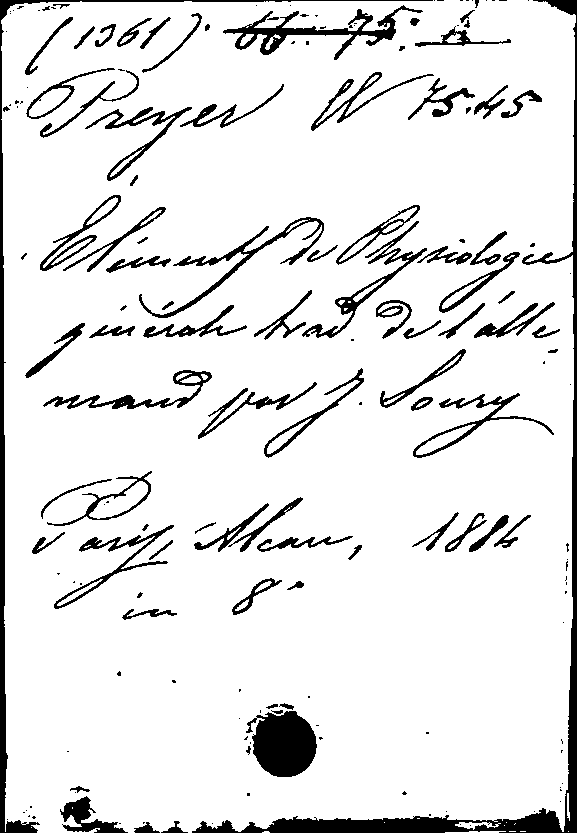 (1361). 75. A
Preyer W 75.45
Éléments de Physiologie
générale trad. de l'alle-
mand par J. Soury
Paris, Alcan, 1884
in 8°